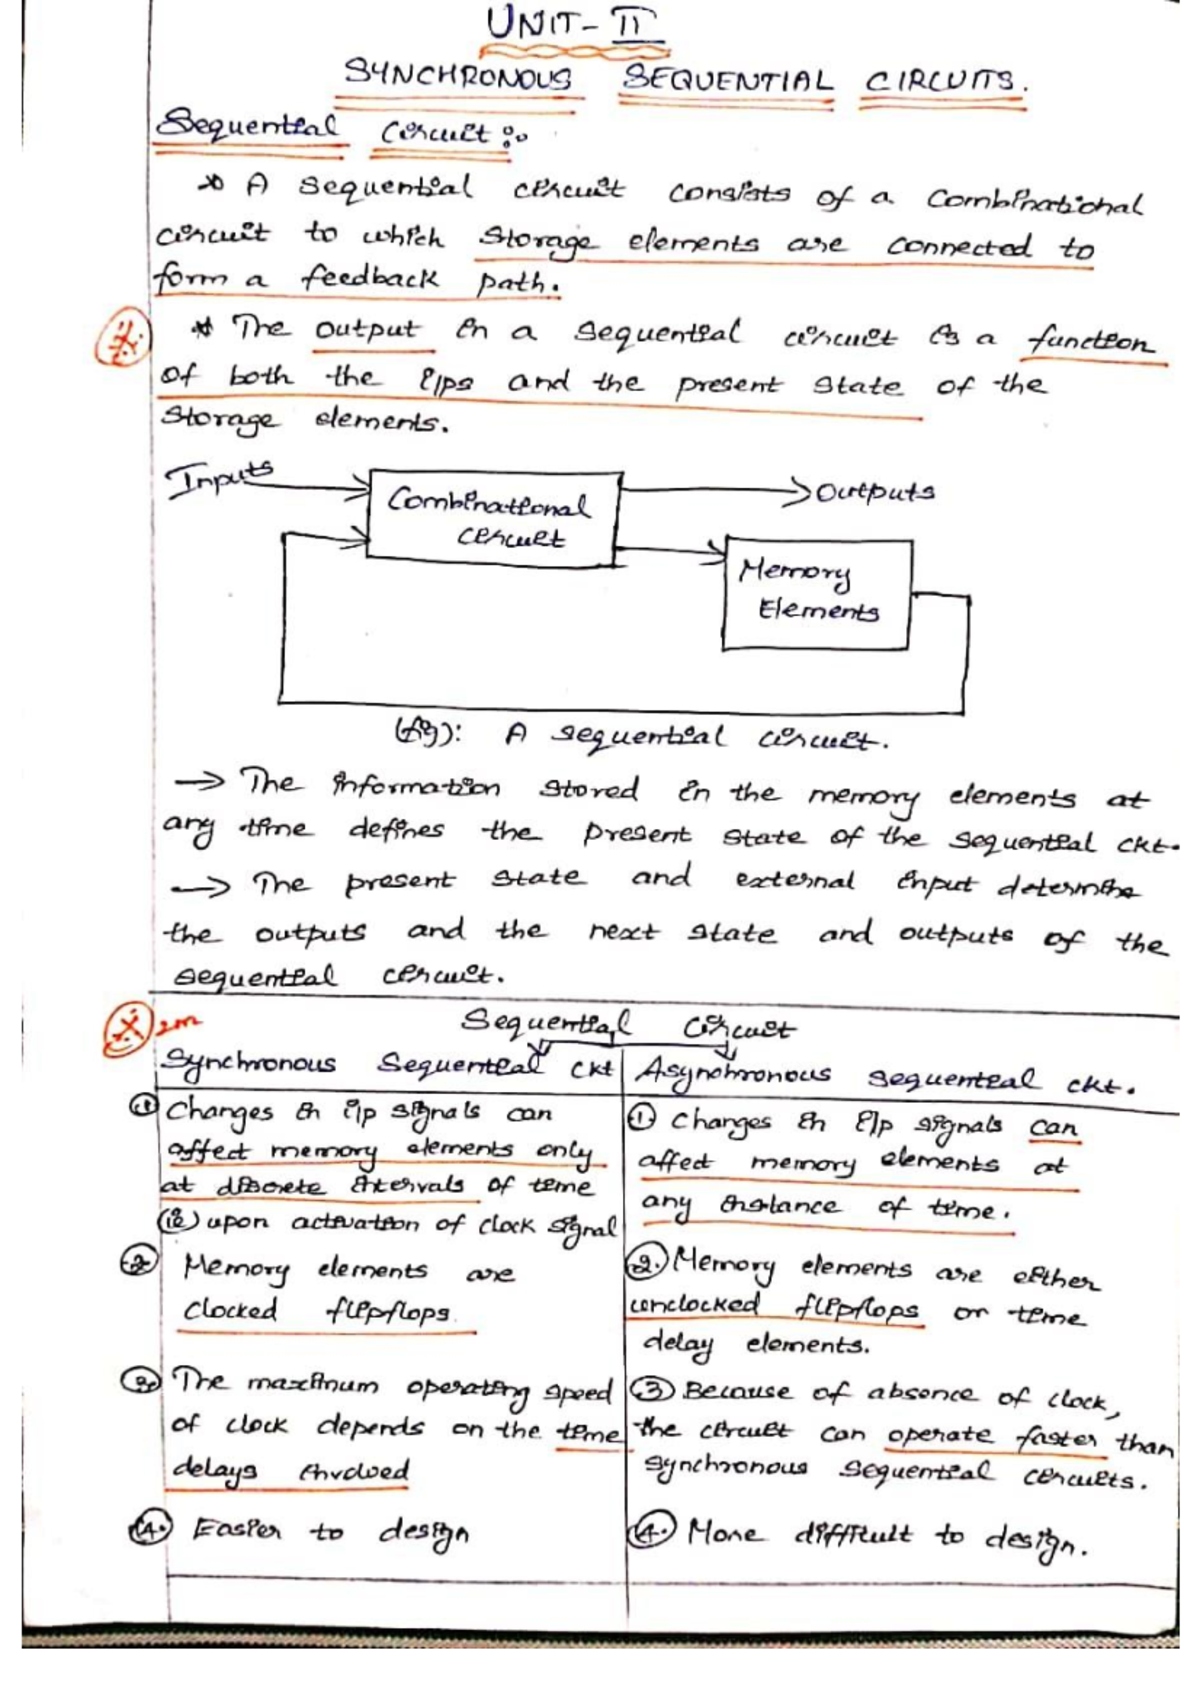 UNIT-II
SYNCHRONOUS SEQUENTIAL CIRCUITS.
Sequential Circuit:-
* A sequential circuit consists of a Combinational
circuit to which storage elements are connected to
form a feedback path.
* The output in a sequential circuit is a function
of both the i/ps and the present state of the
storage elements.
Inputs
Combinational
circuit
Outputs
Memory
Elements
(fig): A sequential circuit.
→ The information stored in the memory elements at
any time defines the present state of the sequential ckt.
→ The present state and external input determine
the outputs and the next state and outputs of the
sequential circuit.
2m
Sequential Circuit
Synchronous Sequential ckt
Asynchronous sequential ckt.
① Changes in i/p signals can
affect memory elements only
at discrete intervals of time
(ie) upon activation of clock signal
② Memory elements are
clocked flipflops.
③ The maximum operating speed
of clock depends on the time
delays involved
④ Easier to design
① Changes in i/p signals can
affect memory elements at
any instance of time.
② Memory elements are either
unclocked flipflops or time
delay elements.
③ Because of absence of clock,
the circuit can operate faster than
synchronous sequential circuits.
④ More difficult to design.